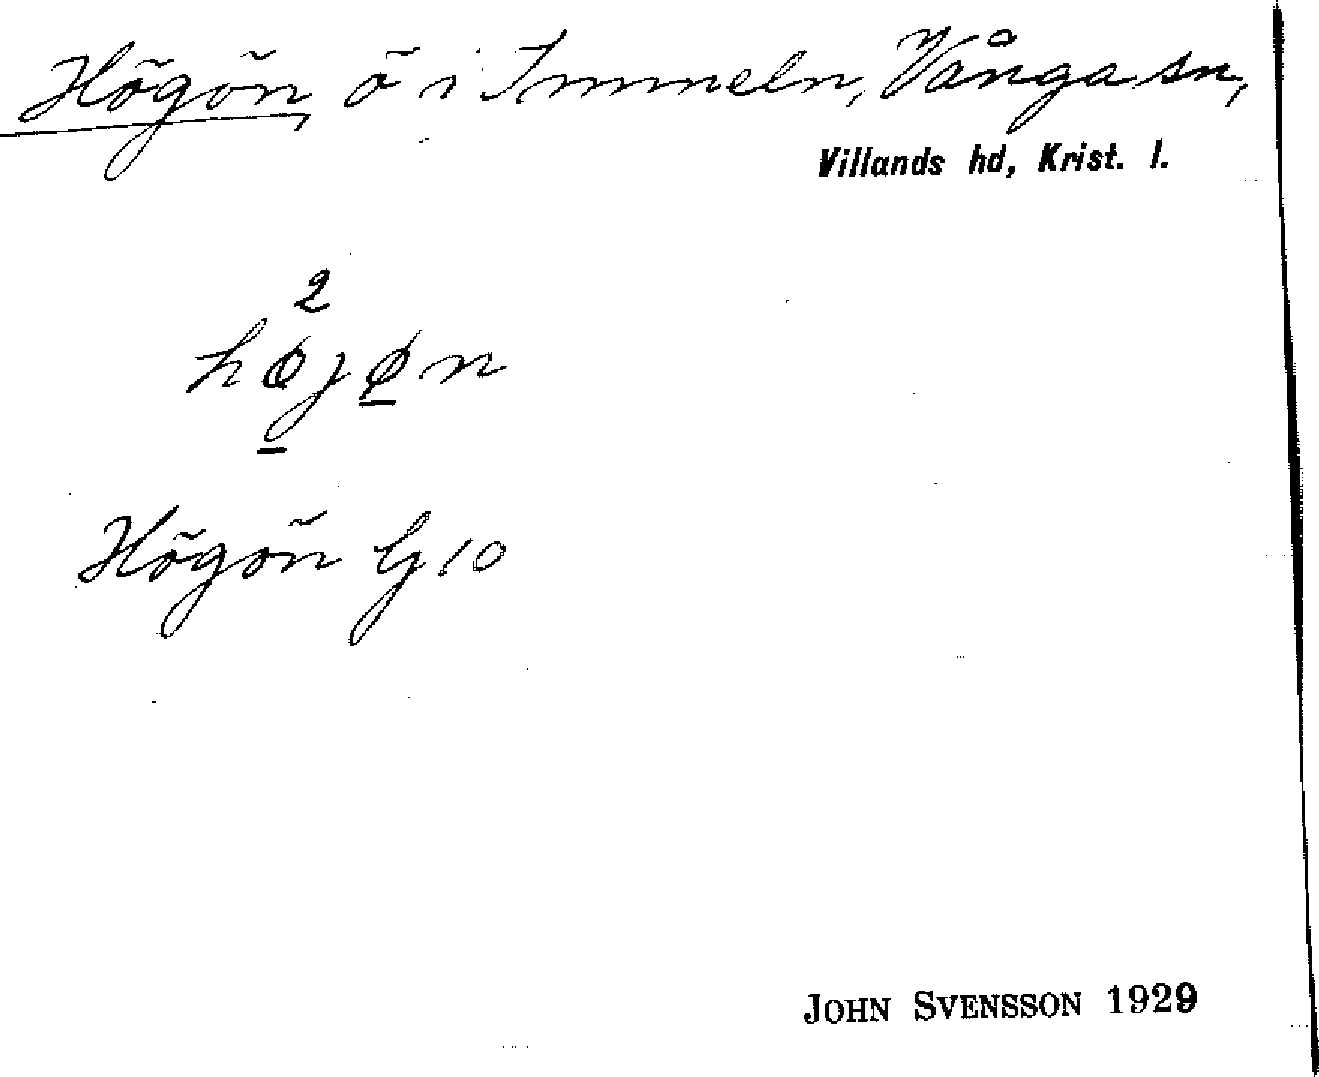 Högön, ö i Immeln, Vånga sn,
Villands hd, Krist. l.
2
højøn
Högön G10
JOHN SVENSSON 1929